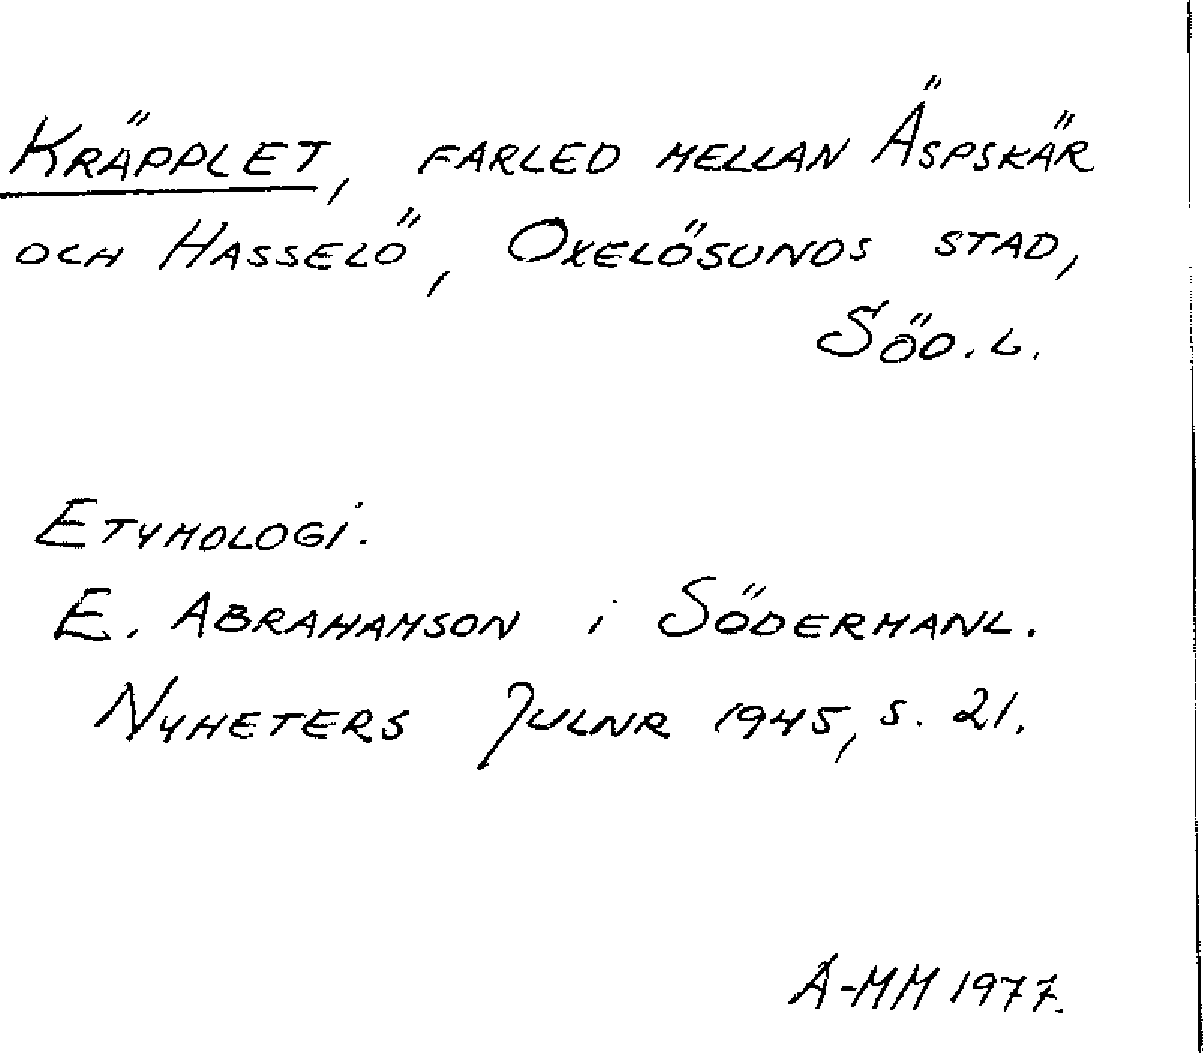 KRÄPPLET, FARLED MELLAN ÄSPSKÄR
OCH HASSELÖ, OXELÖSUNDS STAD,
SÖD. L.
ETYMOLOGI.
E. ABRAHAMSON i SÖDERMANL.
NYHETERS JULNR 1945, S. 21.
A-MM 1977.